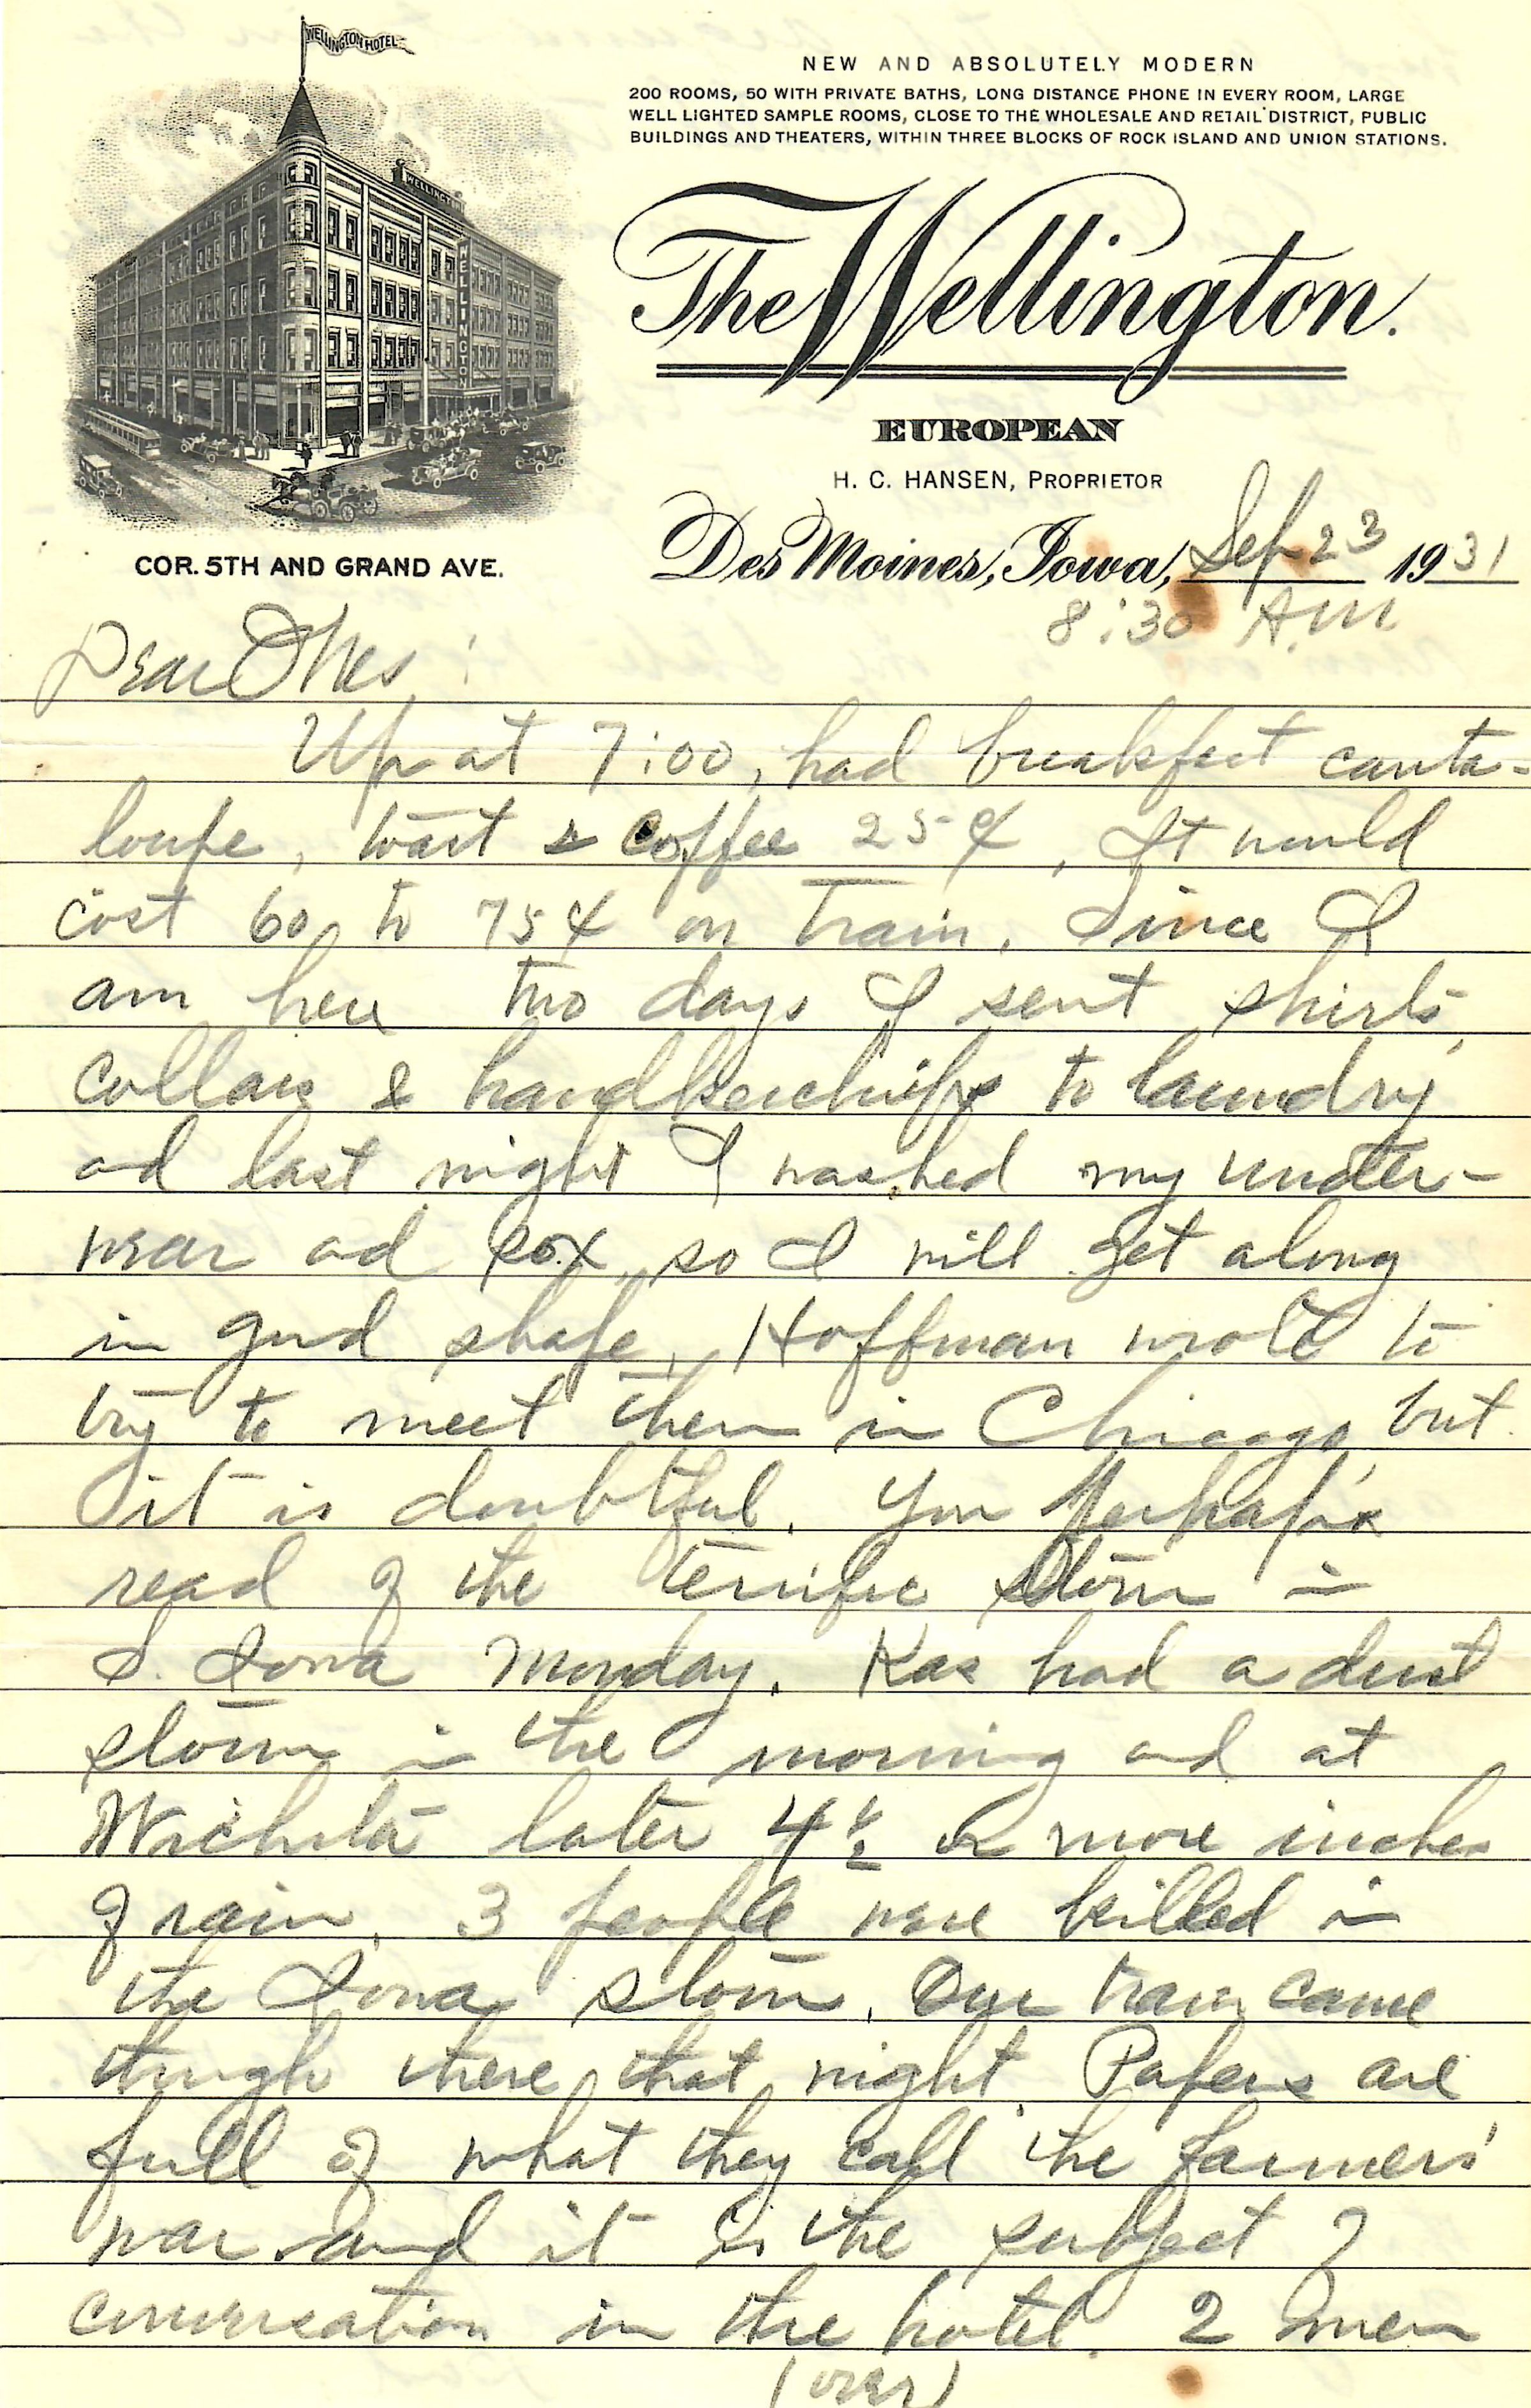 WELLINGTON HOTEL
WELLINGTON
WELLINGTON
NEW AND ABSOLUTELY MODERN
200 ROOMS, 50 WITH PRIVATE BATHS, LONG DISTANCE PHONE IN EVERY ROOM, LARGE
WELL LIGHTED SAMPLE ROOMS, CLOSE TO THE WHOLESALE AND RETAIL DISTRICT, PUBLIC
BUILDINGS AND THEATERS, WITHIN THREE BLOCKS OF ROCK ISLAND AND UNION STATIONS.
The Wellington.
EUROPEAN
H. C. HANSEN, PROPRIETOR
COR. 5TH AND GRAND AVE.
Des Moines, Iowa, Sep 23 1931
8:30 A.M.
Dear Ones:
Up at 7:00, had breakfast canta-
loupe, toast & coffee 25¢, It would
cost 60 to 75¢ on train. Since I
am here two days I sent shirts,
collars & handkerchiefs to laundry
ad last night I washed my under-
wear ad sox, so I will get along
in good shape, Hoffman wrote to
try to meet them in Chicago, but
it is doubtful. You perhaps
read of the terrific storm in
S. Iowa Monday. Kas had a dust
storm in the morning ad at
Wichita later 4½ or more inches
of rain. 3 people were killed in
the Iowa storm. Our train came
though there that night. Papers are
full of what they call the farmers'
war and it is the subject of
conversation in the hotel. 2 men
(over)